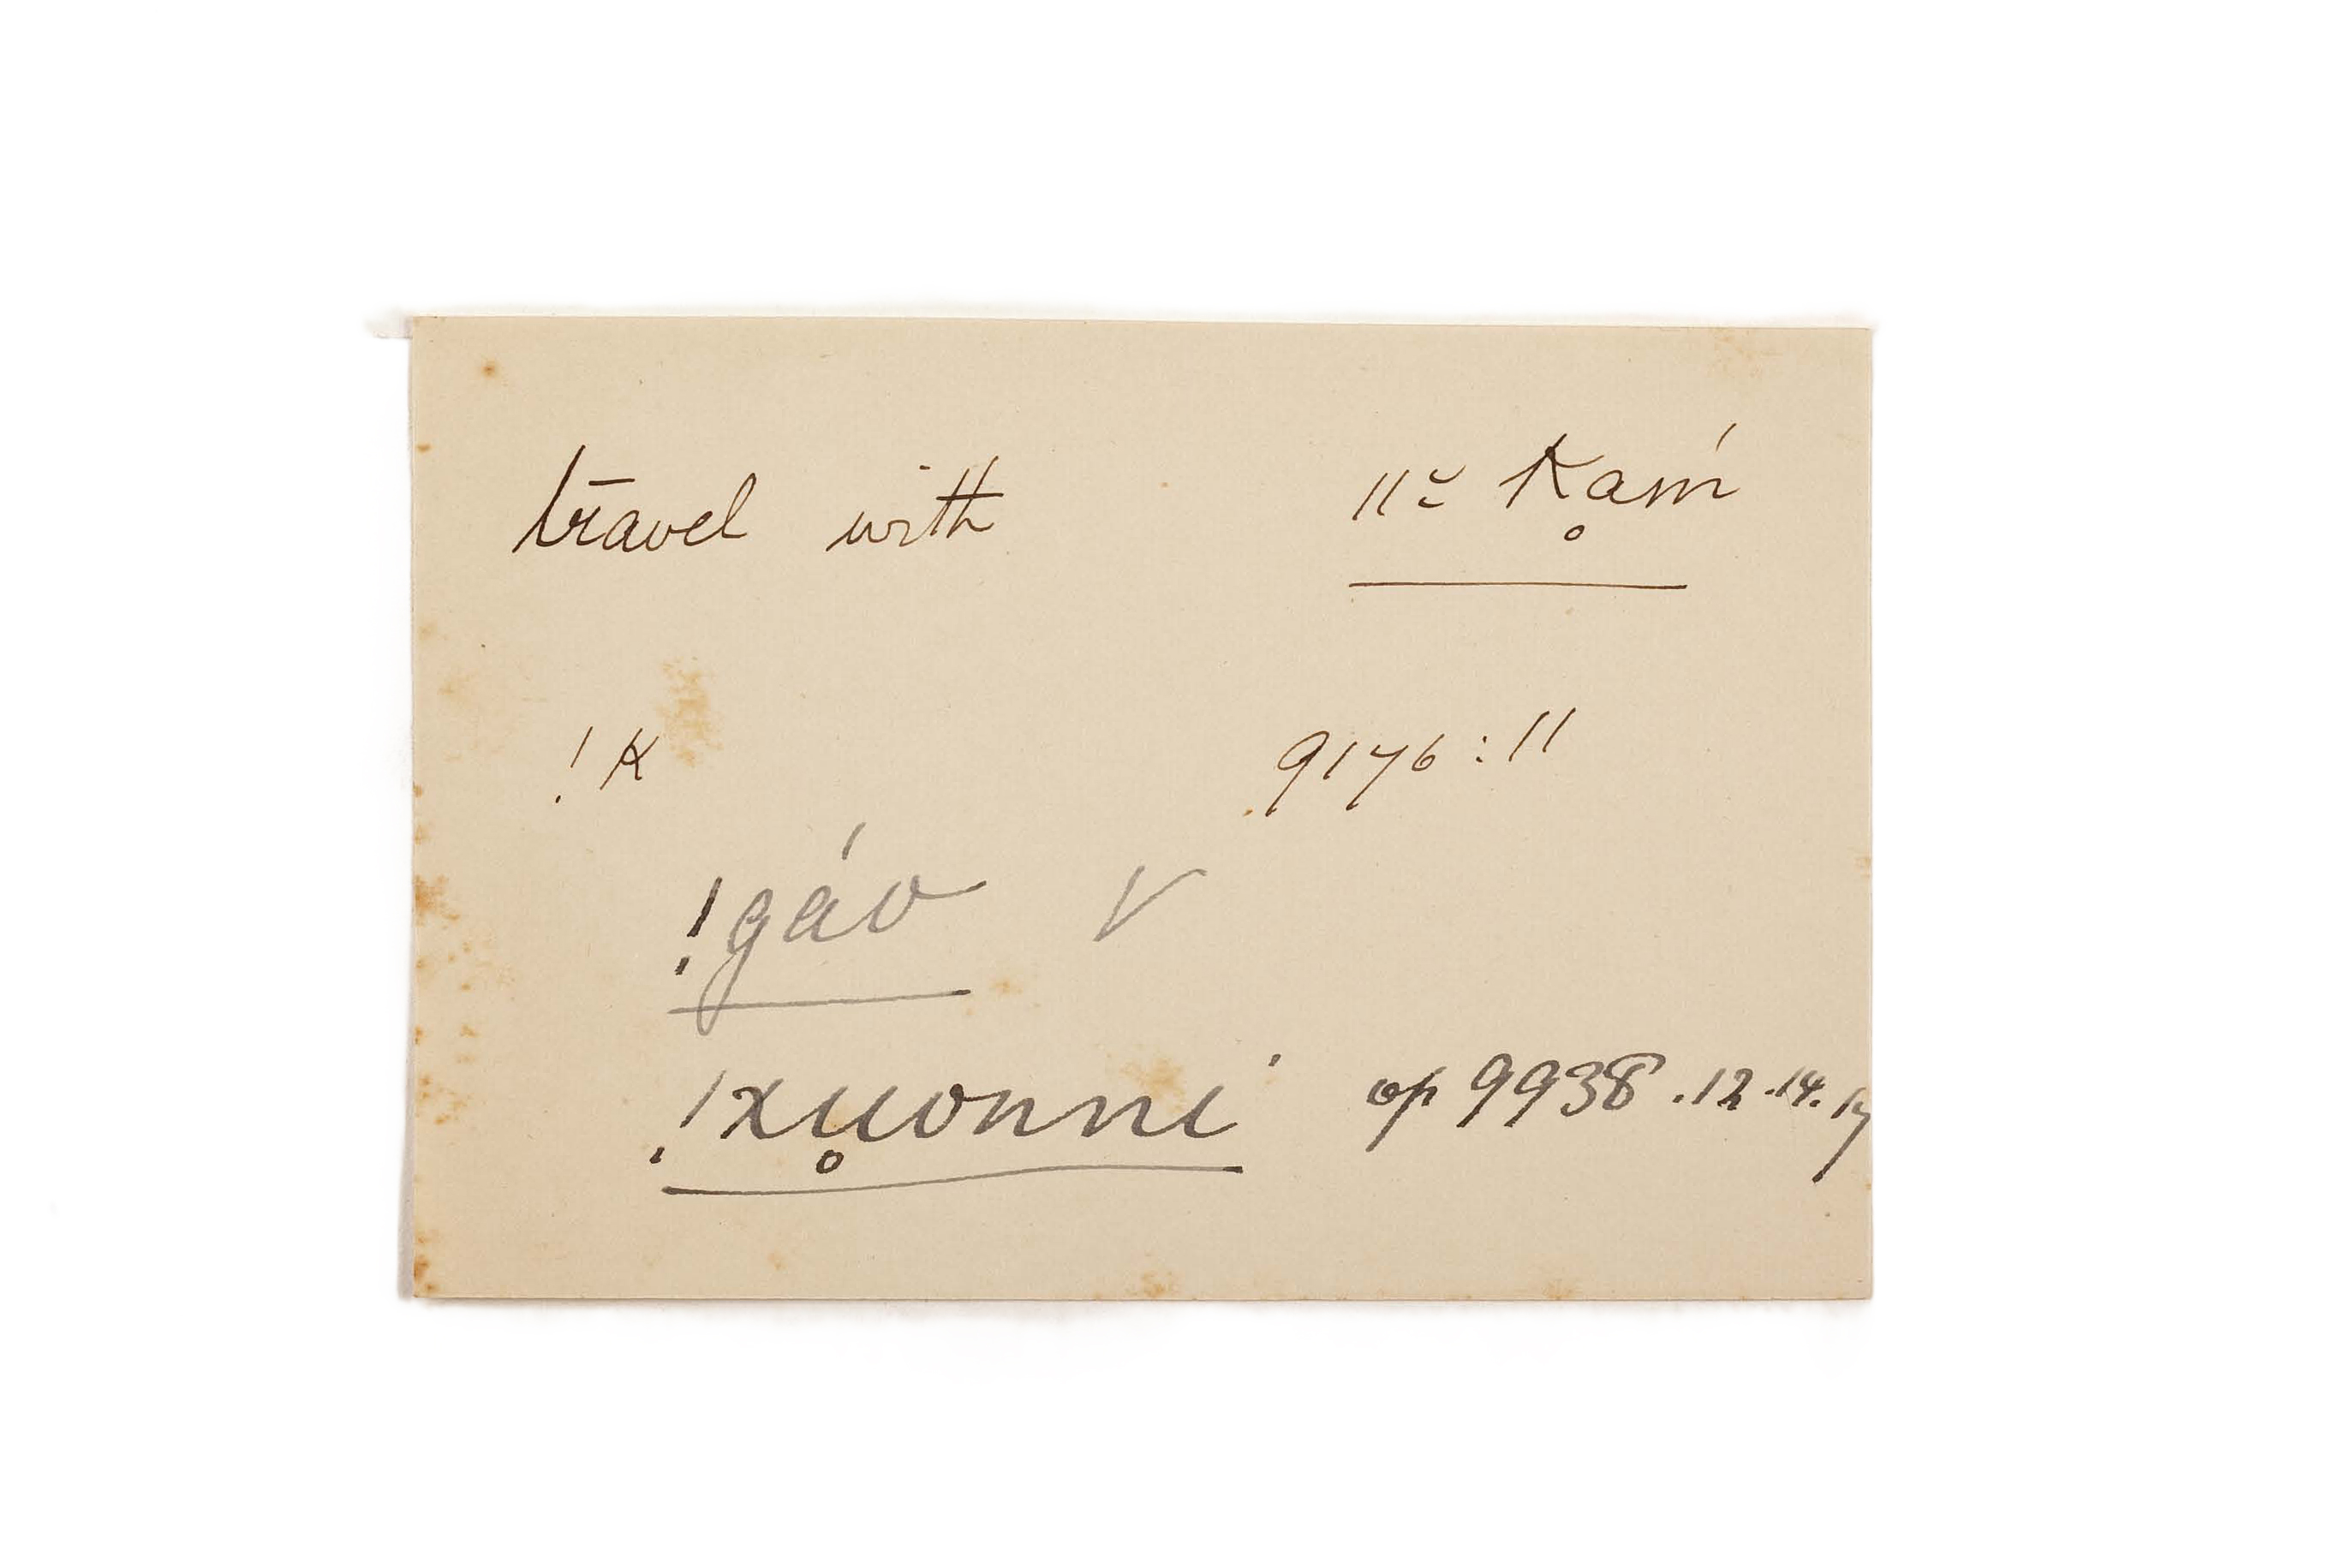 travel with ǁ͌ Kḁḿ
! K 9176 : 11
!gáo V
!xu̥onní op 9938 . 12 . 14 . 17